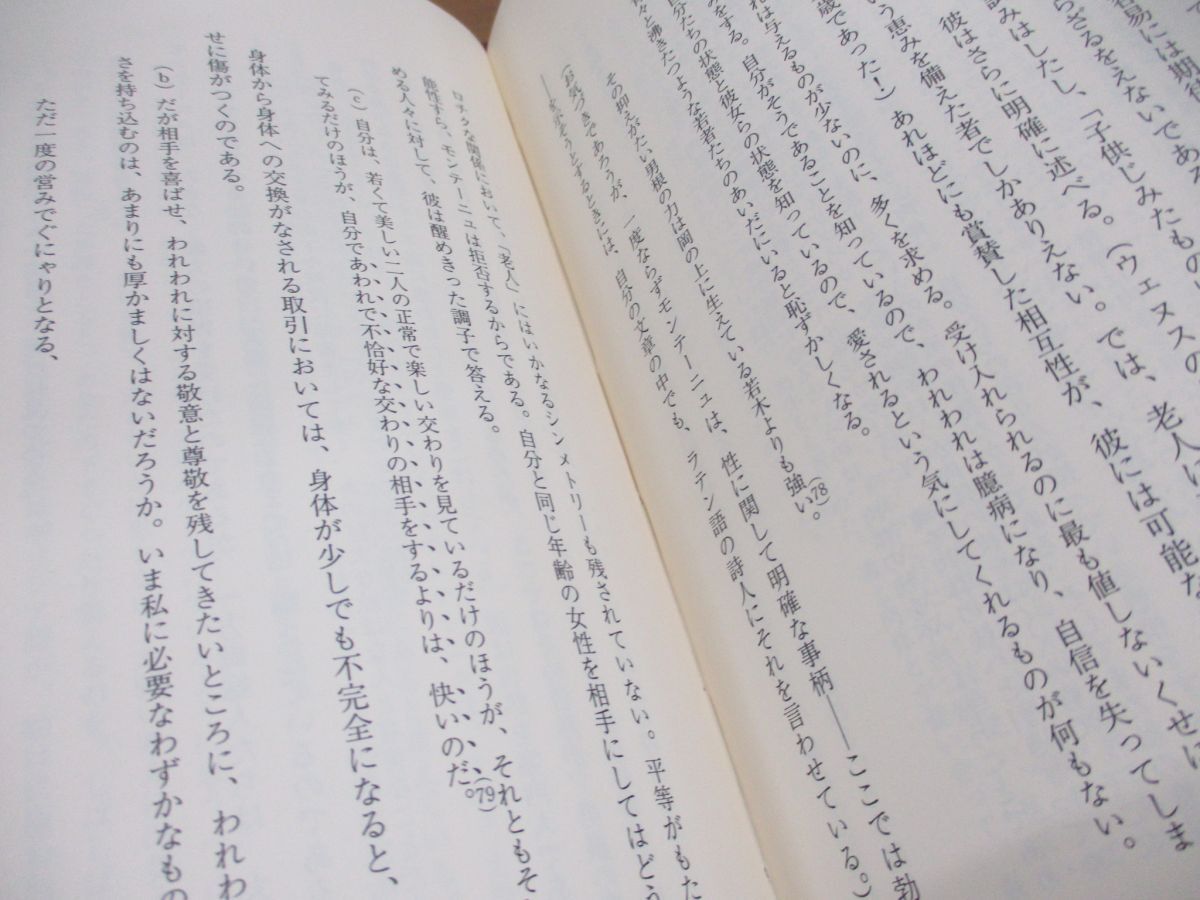 容易には期待
らざるをえないである
試みはしたし、「子供じみたもの
彼はさらに明確に述べる。(ウェヌスの
いう恵みを備えた者でしかありえない。では、老人に
歳であった!)あれほどにも賞賛した相互性が、彼には可能な
れは与えるものが少ないのに、多くを求める。受け入れられるのに最も値しないくせに
をする。自分がそうであることを知っているので、われわれは臆病になり、自信を失ってしま
自分たちの状態と彼女らの状態を知っているので、愛されるという気にしてくれるものが何もない。
々と沸きたつような若者たちのあいだにいると恥ずかしくなる。
その抑えがたい男根の力は岡の上に生えている若木よりも強い。(78)
(お気づきであろうが、一度ならずモンテーニュは、性に関して明確な事柄――ここでは勃
――を示そうとするときには、自分の文章の中でも、ラテン語の詩人にそれを言わせている。)
ロチクな関係において、「老人」にはいかなるシンメトリーも残されていない。平等がもた
能性すら、モンテーニュは拒否するからである。自分と同じ年齢の女性を相手にしてはどう
める人々に対して、彼は醒めきった調子で答える。
(c)自分は、若くて美しい二人の正常で楽しい交わりを見ているだけのほうが、それともそ
てみるだけのほうが、自分であわれで不恰好な交わりの相手をするよりは、快いのだ。(79)
身体から身体への交換がなされる取引においては、身体が少しでも不完全になると、
せに傷がつくのである。
(b)だが相手を喜ばせ、われわれに対する敬意と尊敬を残してきたいところに、われわ
さを持ち込むのは、あまりにも厚かましくはないだろうか。いま私に必要なわずかなもの
ただ一度の営みでぐにゃりとなる、